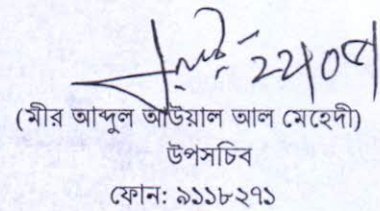 22/05
(মীর আব্দুল আউয়াল আল মেহেদী)
উপসচিব
ফোন: ৯১১৮২৭১